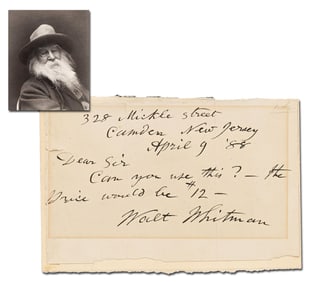 328 Mickle street
Camden New Jersey
April 9 '88
Dear Sir
Can you use this? — the
price would be $12 —
Walt Whitman